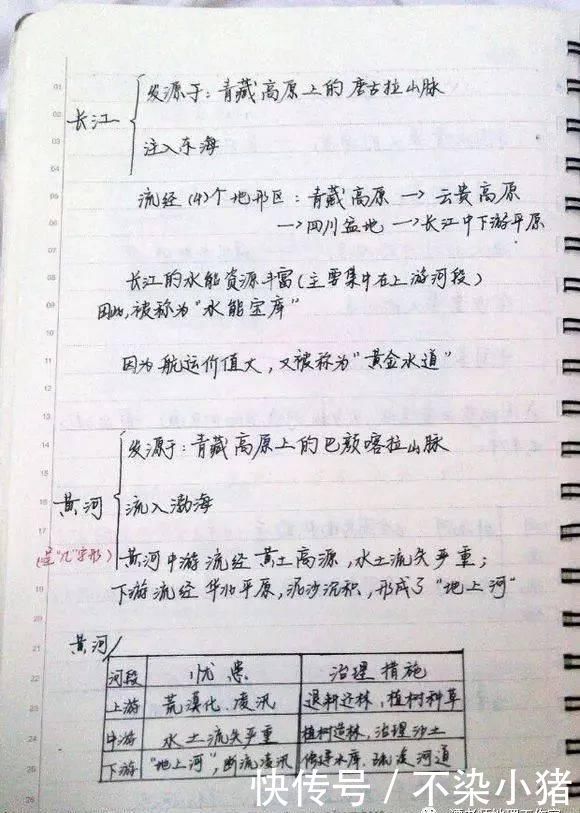 发源于：青藏高原上的唐古拉山脉
长江
注入东海
流经(4)个地形区：青藏高原→云贵高原
→四川盆地→长江中下游平原
长江的水能资源丰富(主要集中在上游河段)
因此,被称为"水能宝库"
因为航运价值大,又被称为"黄金水道"
发源于：青藏高原上的巴颜喀拉山脉
黄河
流入渤海
(呈"几"字形)
黄河中游流经黄土高源,水土流失严重;
下游流经华北平原,泥沙沉积,形成了"地上河"
黄河
河段 忧患 治理措施
上游 荒漠化、凌汛 退耕还林,植树种草
中游 水土流失严重 植树造林,治理沙土
下游 "地上河",断流凌汛 修建水库、疏浚河道
快传号/不染小猪